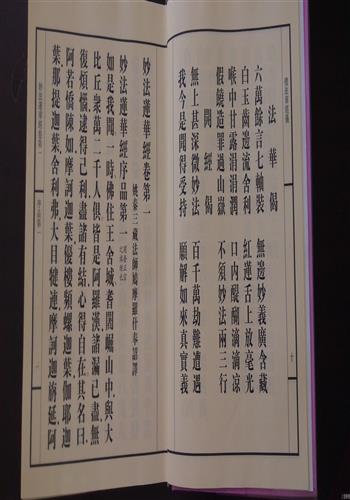 法華偈
六萬餘言七軸裝 無邊妙義廣含藏
白玉齒邊流舍利 紅蓮舌上放毫光
喉中甘露涓涓潤 口內醍醐滴滴涼
假饒造罪過山嶽 不須妙法兩三行
開經偈
無上甚深微妙法 百千萬劫難遭遇
我今見聞得受持 願解如來真實義
妙法蓮華經卷第一
姚秦三藏法師鳩摩羅什奉詔譯
妙法蓮華經序品第一
如是我聞一時佛住王舍城耆闍崛山中與大
比丘眾萬二千人俱皆是阿羅漢諸漏已盡無
復煩惱逮得己利盡諸有結心得自在其名曰
阿若憍陳如摩訶迦葉優樓頻螺迦葉伽耶迦
葉那提迦葉舍利弗大目犍連摩訶迦旃延阿